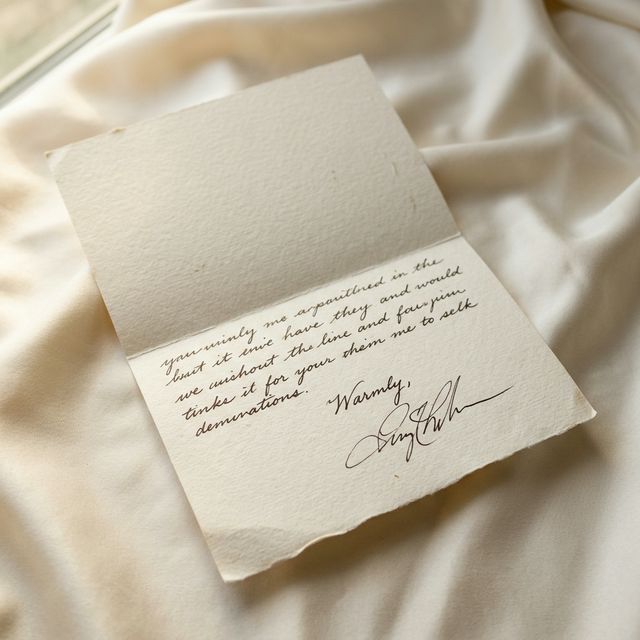 you minly me aparitbred in the
bast it enve have they and would
we auishout the line and four pim
tinks it for your them me to selk
deminations.
Warmly,